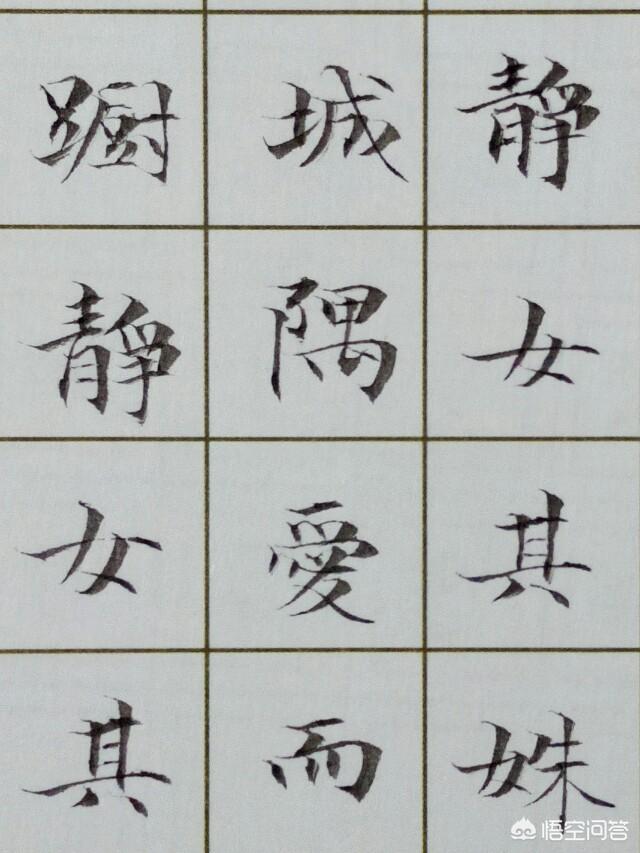 静女其姝
城隅愛而
蹰静女其
悟空问答